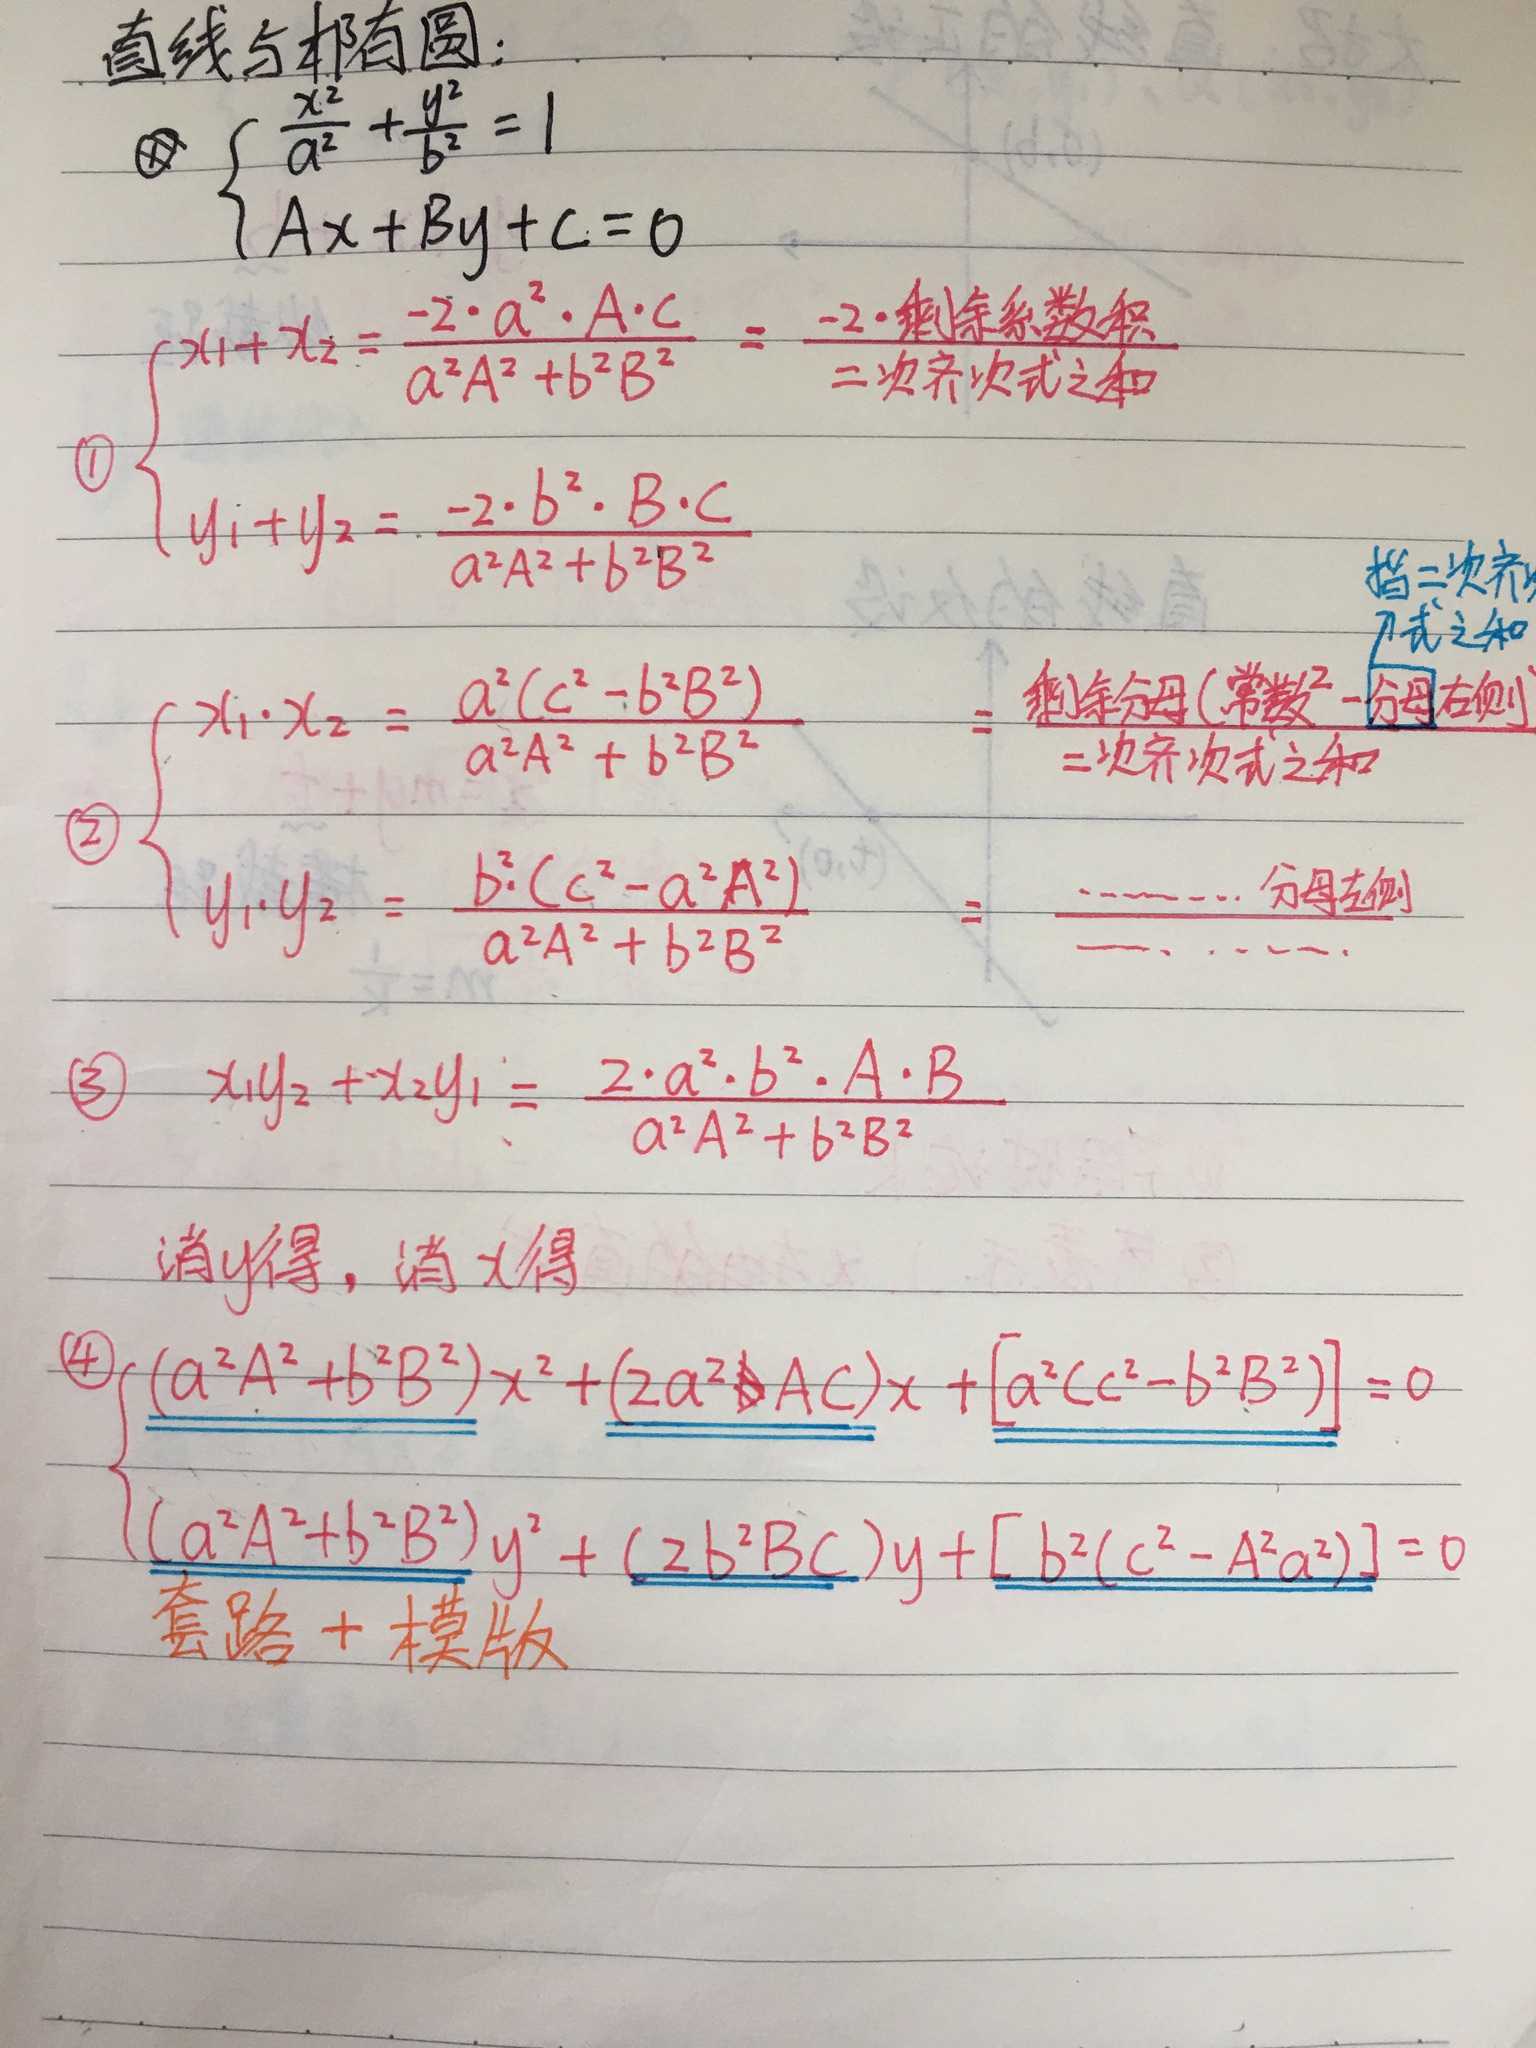 直线与椭圆:
⊗ { x²/a² + y²/b² = 1
Ax+By+C=0
① { x₁+x₂ = -2·a²·A·C / a²A²+b²B² = -2·剩余系数积 / 二次齐次式之和
y₁+y₂ = -2·b²·B·C / a²A²+b²B²
指二次齐次
式之和
② { x₁·x₂ = a²(c²-b²B²) / a²A²+b²B² = 剩余分母(常数²-分母右侧) / 二次齐次式之和
y₁·y₂ = b²·(c²-a²A²) / a²A²+b²B² = ........ 分母左侧 / ........
③ x₁y₂+x₂y₁ = 2·a²·b²·A·B / a²A²+b²B²
消y得, 消x得
④ { (a²A²+b²B²)x²+(2a²AC)x+[a²(c²-b²B²)]=0
(a²A²+b²B²)y²+(2b²BC)y+[b²(c²-A²a²)]=0
套路+模版